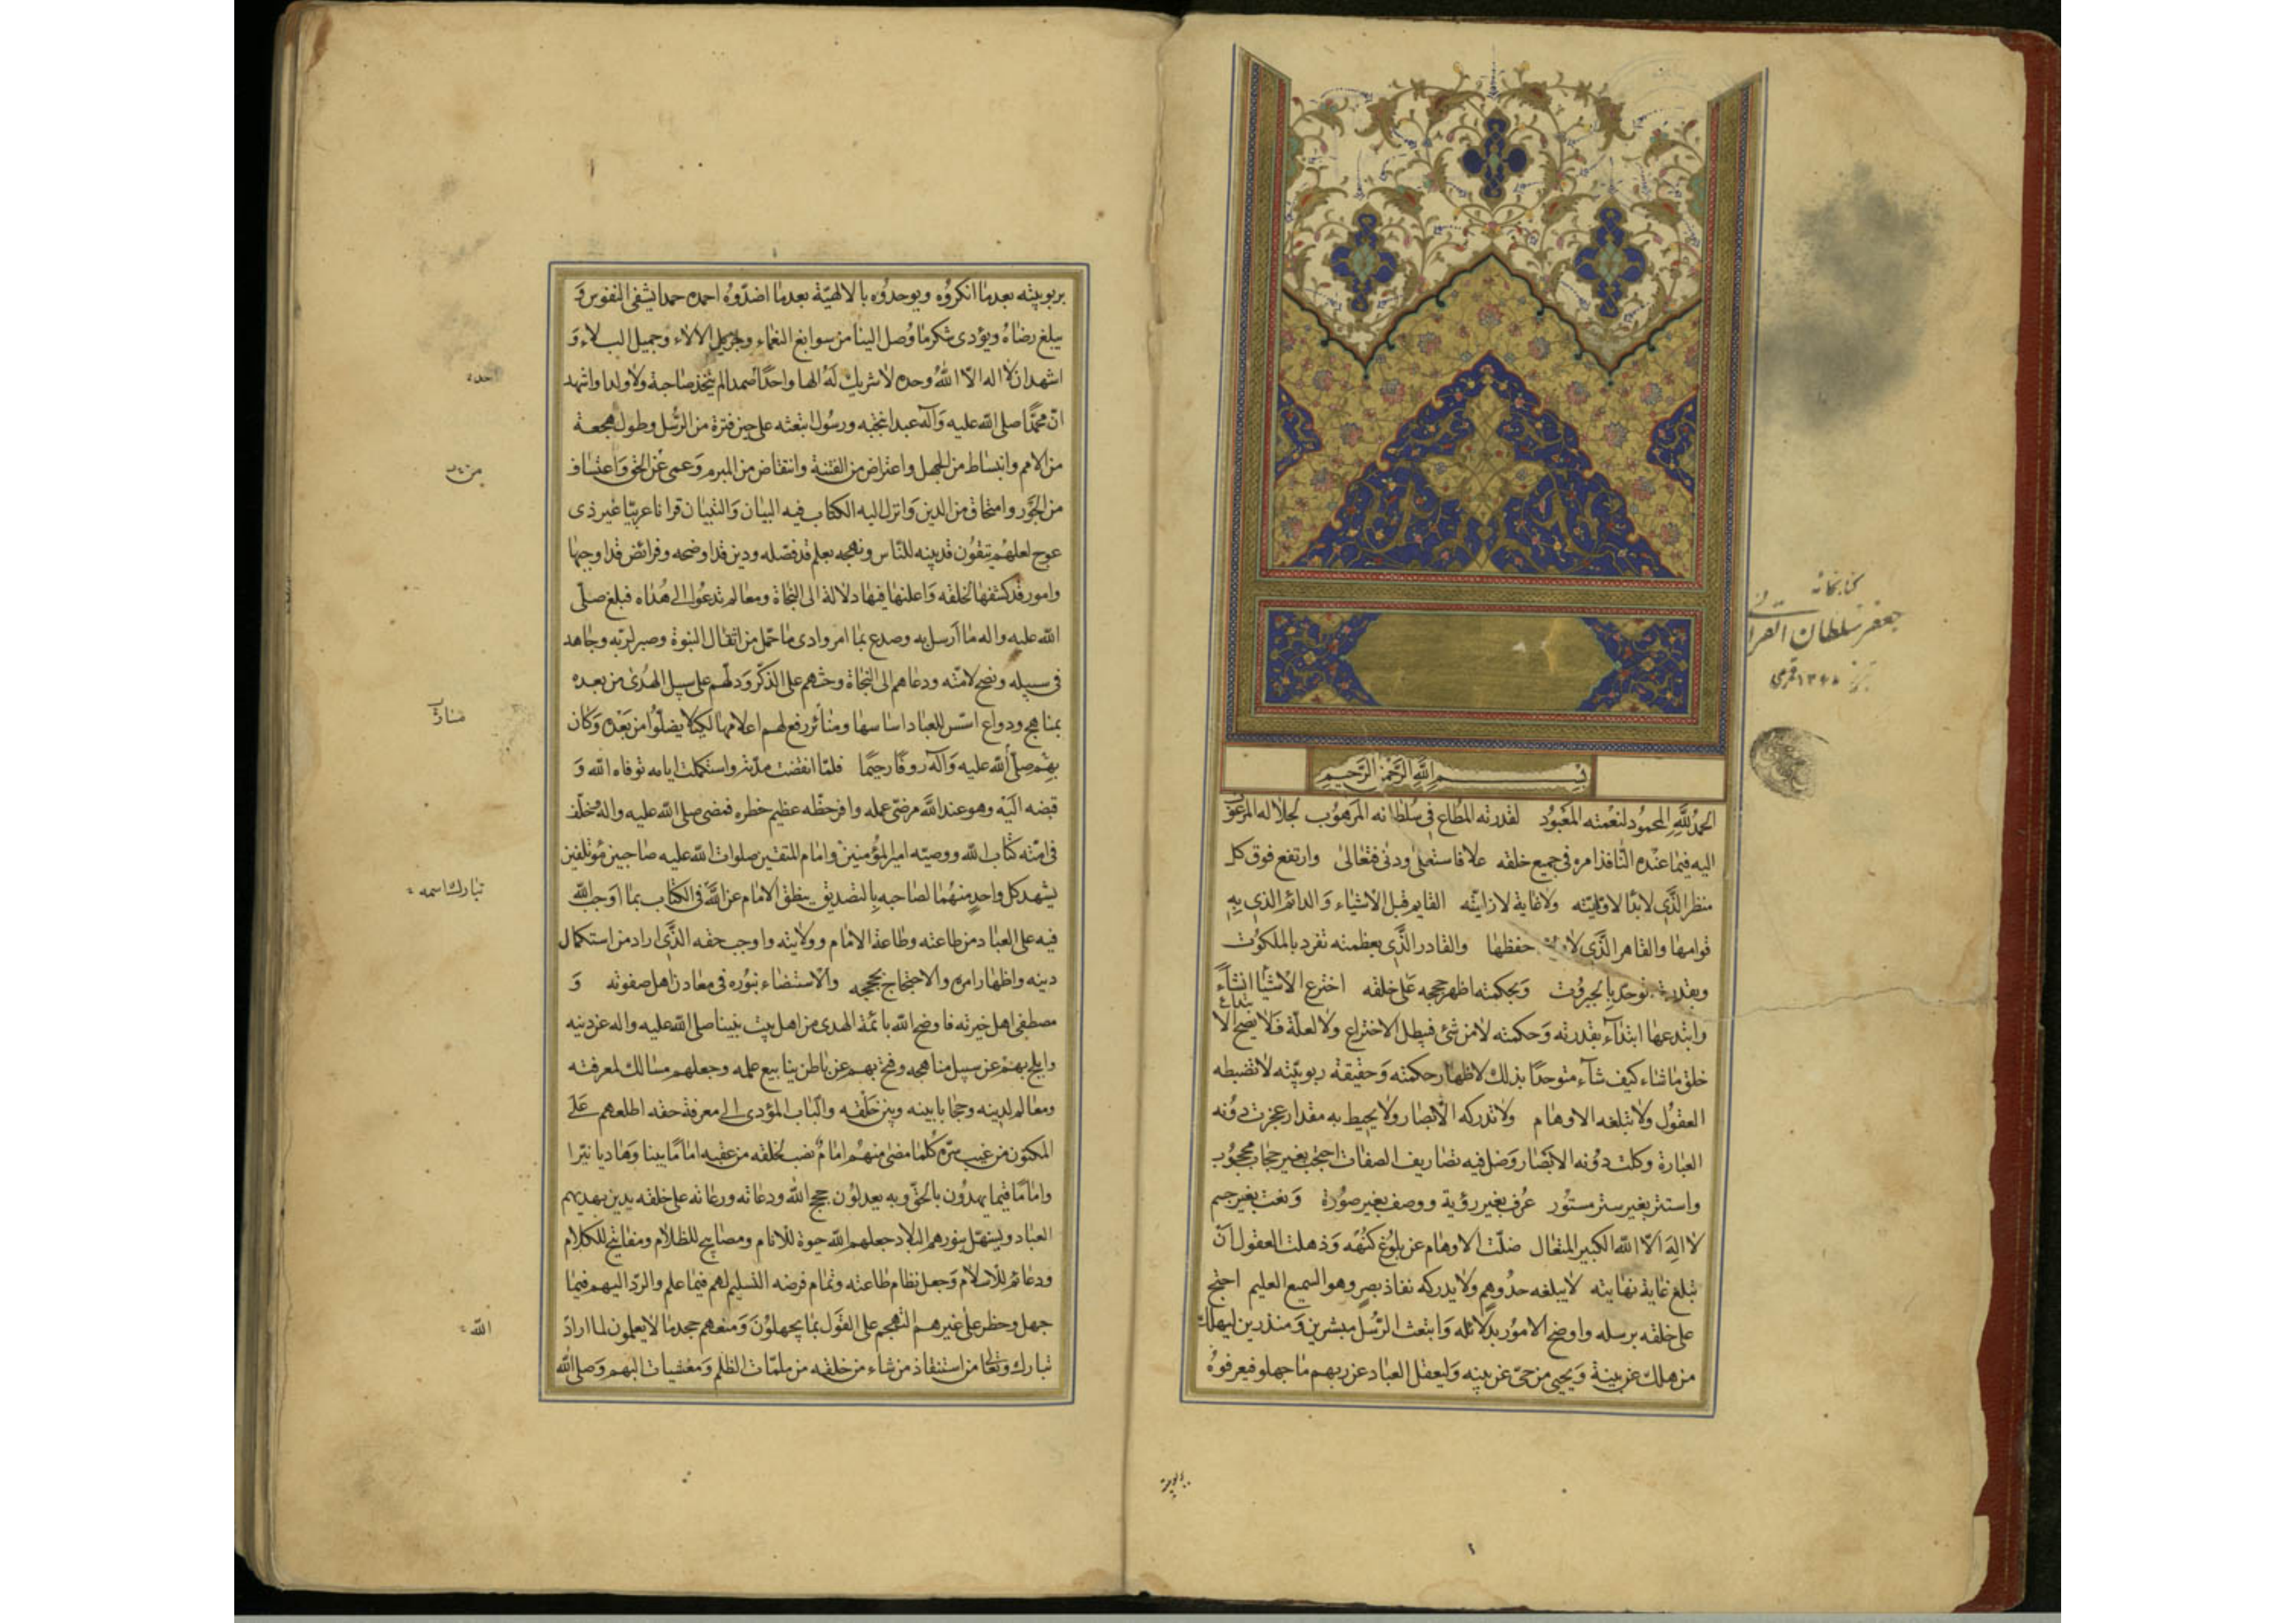 بسم الله الرحمن الرحيم
الحمد لله المحمود لنعمته المعبود لقدرته المطاع في سلطانه المرهوب لجلاله المرغوب
اليه فيما عنده النافذ امره في جميع خلقه علا فاستعلى ودنى فتعالى وارتفع فوق كل
منظر الذي لا بدأ لاوليته ولا غاية لازليته القايم قبل الاشياء والدائم الذي به
قوامها والقاهر الذي لا حفظها والقادر الذي بعظمته تفرد بالملكوت
وبقدرته توحد بالجبروت وبحكمته اظهر حججه على خلقه اخترع الاشياء انشاءً
وابتدعها ابتداءً بقدرته وحكمته لا من شئ فيبطل الاختراع ولا لعلة فلا يصح الابتداع
خلق ما شاء كيف شاء متوحدًا بذلك لاظهار حكمته وحقيقة ربوبيته لا تضبطه
العقول ولا تبلغه الاوهام ولا تدركه الابصار ولا يحيط به مقدار عجزت دونه
العبارة وكلت دونه الابصار وضل فيه تصاريف الصفات احتجب بغير حجاب محجوب
واستتر بغير ستر مستور عرف بغير رؤية ووصف بغير صورة ونعت بغير جسم
لا اله الا الله الكبير المتعال ضلت الاوهام عن بلوغ كنهه وذهلت العقول ان
تبلغ غاية نهايته لا يبلغه حد وهم ولا يدركه نفاذ بصر وهو السميع العليم احتج
على خلقه برسله واوضح الامور بدلائله وابتعث الرسل مبشرين ومنذرين ليهلك
من هلك عن بينة ويحيى من حى عن بينه وليعقل العباد عن ربهم ما جهلو فيعرفوه
كتابخانه
جعفر سلطان القرائى
تبريز ١٣٤٥ قمرى
بربوبيته
بربوبيته بعد ما انكروه ويوحدوه بالالهية بعد ما اضدوه احمده حمدا يشفى النفوس و
يبلغ رضاه ويؤدى شكر ما وصل الينا من سوابغ النعماء وجزيل الالاء وجميل البلاء و
اشهد ان لا اله الا الله وحده لا شريك له الها واحدًا صمدا لم يتخذ صاحبة ولا ولدا واشهد
ان محمدًا صلى الله عليه وآله عبد انتجبه ورسول ابتعثه على حين فترة من الرسل وطول هجعة
من الامم وانبساط من الجهل واعتراض من الفتنة وانتقاض من المبرم وعمى عن الحق واعتساف
من الجور وامتحاق من الدين وانزل اليه الكتاب فيه البيان والتبيان قرانا عربيًا غير ذى
عوج لعلهم يتقون قد بينه للناس ونهجه بعلم قد فصله ودين قد اوضحه وفرائض قد اوجبها
وامور قد كشفها لخلقه واعلنها فيها دلالة الى النجاة ومعالم تدعوا الى هداه فبلغ صلى
الله عليه واله ما ارسل به وصدع بما امر وادى ما حمل من اثقال النبوة وصبر لربه وجاهد
فى سبيله ونصح لامته ودعاهم الى النجاة وحثهم على الذكر ودلهم على سبيل الهدى من بعده
بمناهج ودواع اسس للعباد اساسها ومنائر رفع لهم اعلامها لكيلا يضلوا من بعده وكان
بهم صلى الله عليه وآله روفًا رحيمًا فلما انقضت مدته واستكملت ايامه توفاه الله و
قبضه اليه وهو عند الله مرضى عمله وافر حظه عظيم خطره فمضى صلى الله عليه واله وخلف
فى امته كتاب الله ووصيه امير المؤمنين وامام المتقين صلوات الله عليه صاحبين مؤتلفين
يشهد كل واحد منهما لصاحبه بالتصديق ينطق الامام عن الله فى الكتاب بما اوجب الله
فيه على العباد من طاعته وطاعة الامام وولايته واوجب حقه الذى اراد من استكمال
دينه واظهار امره والاحتجاج بحججه والاستضاء بنوره فى معادن اهل صفوته و
مصطفى اهل خيرته فاوضح الله بائمة الهدى من اهل بيت نبينا صلى الله عليه واله عن دينه
وابلج بهم عن سبيل مناهجه وفتح بهم عن باطن ينابيع علمه وجعلهم مسالك لمعرفته
ومعالم لدينه وحجابا بينه وبين خلقه والباب المؤدى الى معرفة حقه اطلعهم على
المكنون من غيب سره كلما مضى منهم امام نصب لخلقه من عقبه امامًا بينا وهاديا نيرا
وامامًا قيما يهدون بالحق وبه يعدلون حجج الله ودعاته ورعاته على خلقه يدين بهديهم
العباد ويستهل بنورهم البلاد جعلهم الله حيوة للانام ومصابيح للظلام ومفاتيح للكلام
ودعائم للاسلام وجعل نظام طاعته وتمام فرضه التسليم لهم فيما علم والرد اليهم فيما
جهل وحظر على غيرهم التهجم على القول بما يجهلون ومنعهم جحد ما لا يعلمون لما اراد
تبارك وتعالى من استنقاذ من شاء من خلقه من ملمات الظلم ومغشيات البهم وصلى الله
منار
تبارك اسمه
الله